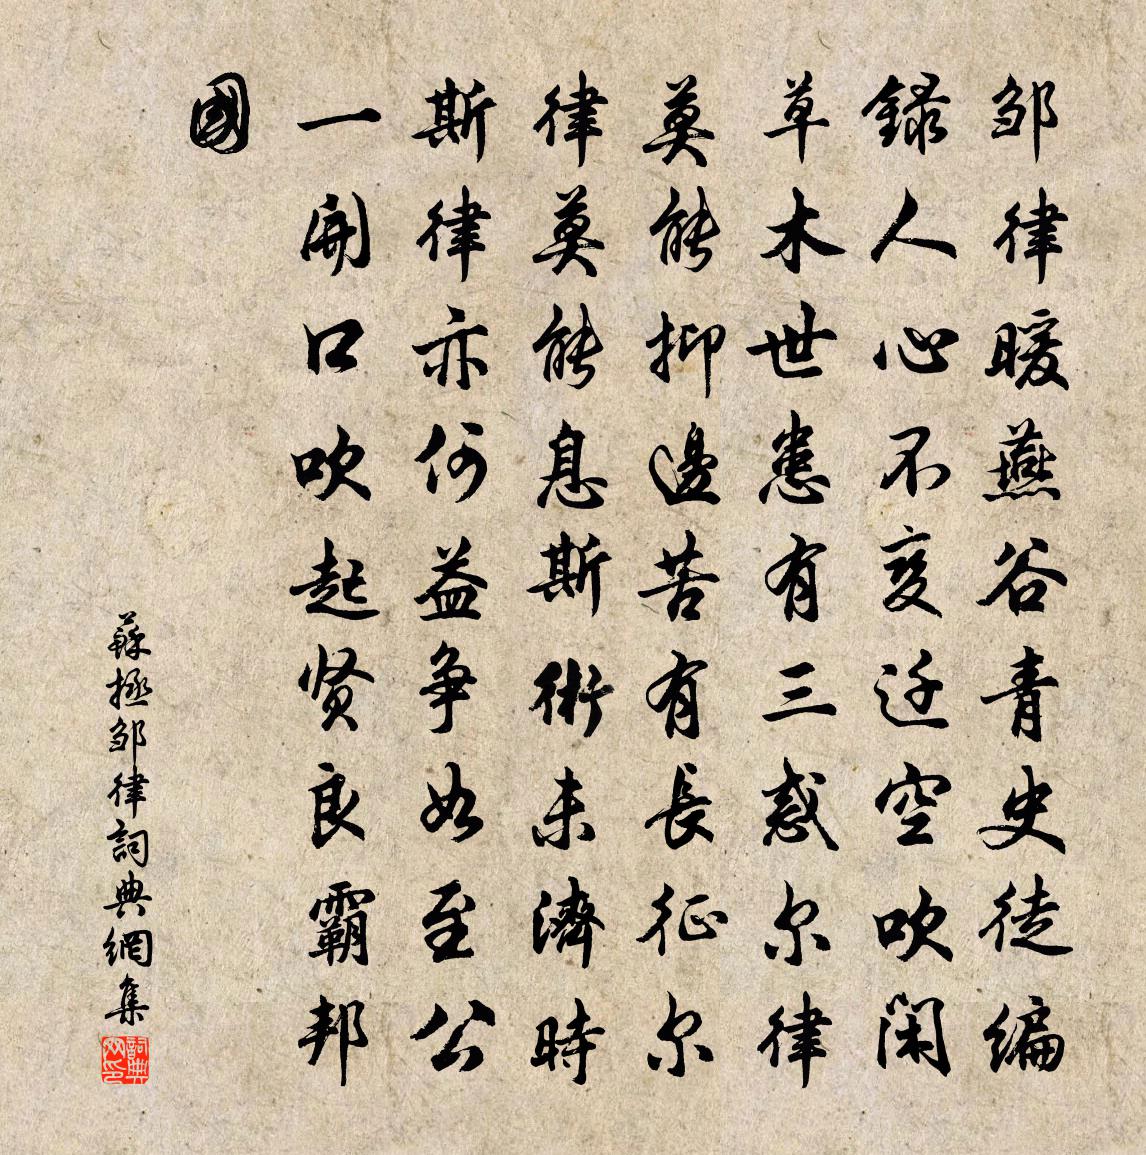 邹律暖燕谷青史徒编
録人心不变迁空吹闲
草木世患有三惑尔律
莫能抑邊苦有長征尔
律莫能息斯術未濟時
斯律亦何益争如至公
一開口吹起贤良霸邦
國
蘇拯邹律詞典網集
詞典網印